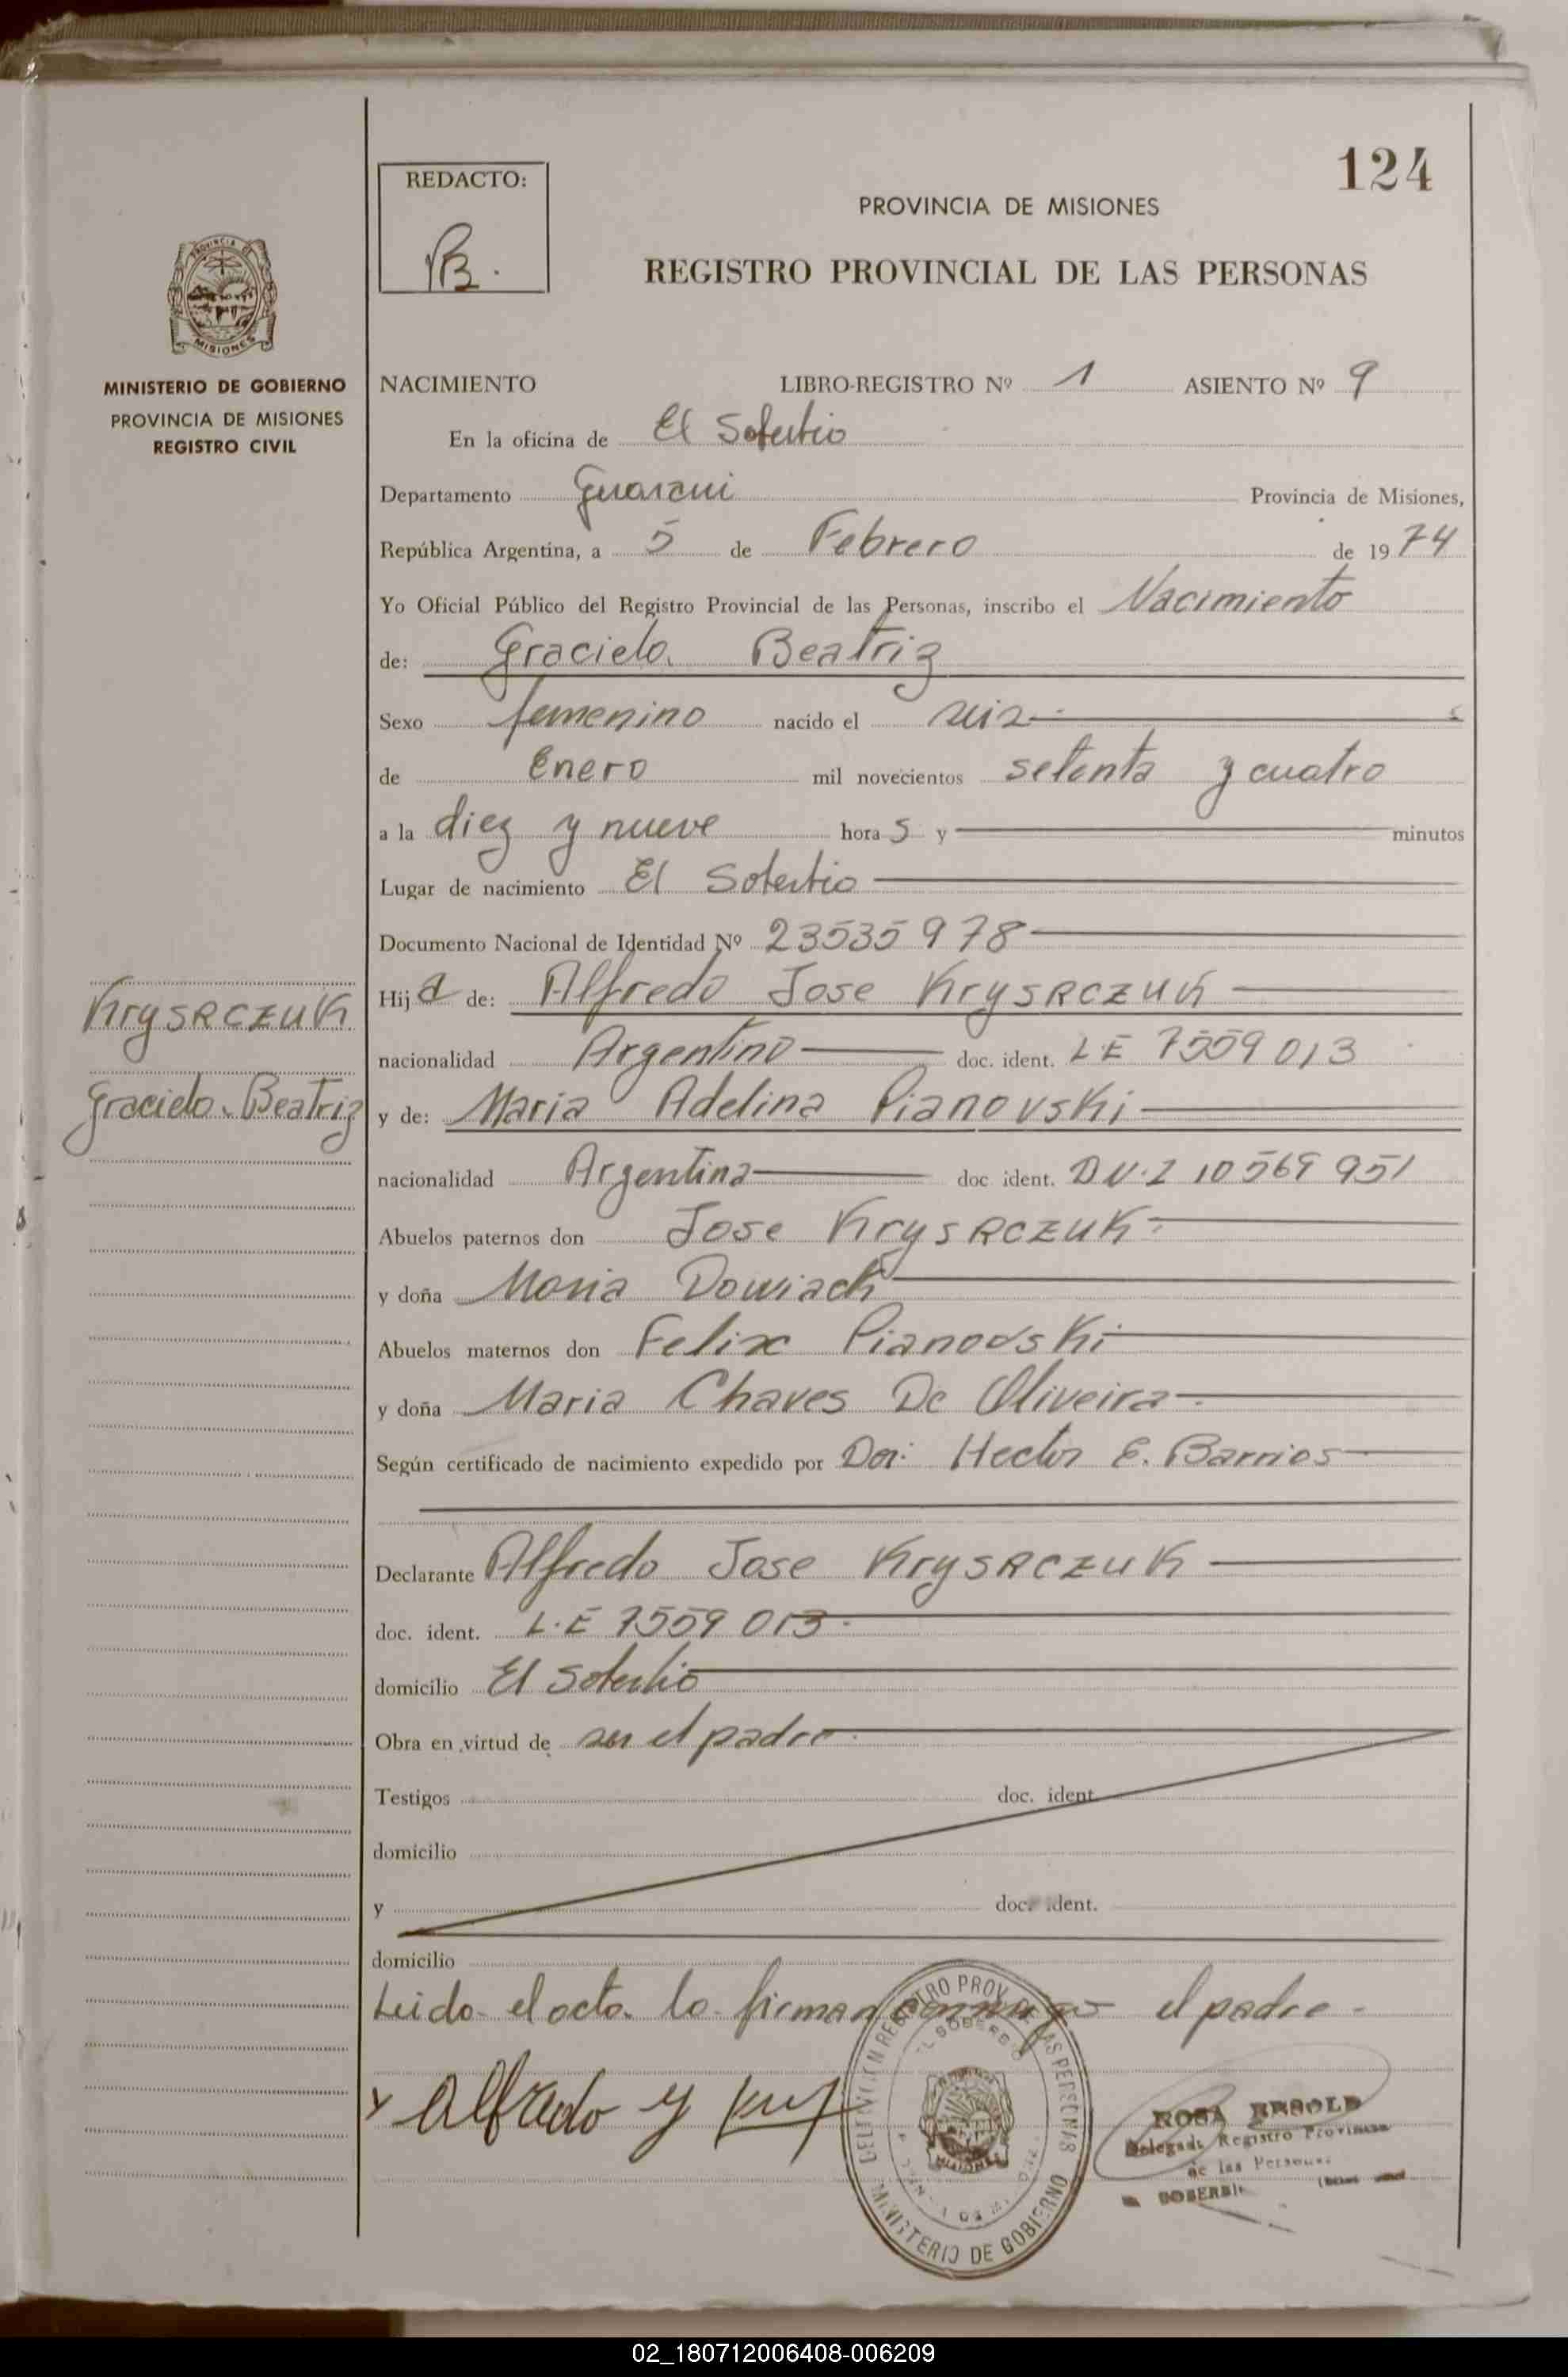 124
REDACTO:
PROVINCIA DE MISIONES
REGISTRO PROVINCIAL DE LAS PERSONAS
PROVINCIA DE
MISIONES
MINISTERIO DE GOBIERNO
PROVINCIA DE MISIONES
REGISTRO CIVIL
NACIMIENTO LIBRO-REGISTRO Nº 1 ASIENTO Nº 9
En la oficina de El Soberbio
Departamento Guarani Provincia de Misiones,
República Argentina, a 5 de Febrero de 1974
Yo Oficial Público del Registro Provincial de las Personas, inscribo el Nacimiento
de: Graciela Beatriz
Sexo femenino nacido el seis
de Enero mil novecientos setenta y cuatro
a la diez y nueve horas y minutos
Lugar de nacimiento El Soberbio
Documento Nacional de Identidad Nº 23535978
Hija de: Alfredo Jose Krysaczuk
Krysaczuk
nacionalidad Argentino doc. ident. LE 7559013
Graciela Beatriz
y de: Maria Adelina Pianovski
nacionalidad Argentina doc ident. 10569951
Abuelos paternos don Jose Krysaczuk
y doña Maria Dowiach
Abuelos maternos don Felix Pianovski
y doña Maria Chaves De Oliveira
Según certificado de nacimiento expedido por Hector E. Barrios
Declarante Alfredo Jose Krysaczuk
doc. ident. L.E 7559013
domicilio El Soberbio
Obra en virtud de ser el padre
Testigos doc. ident.
domicilio
y doc. ident.
domicilio
Leido el acta la firman conmigo el padre
Alfredo
REGISTRO PROV. DE LAS PERSONAS
EL SOBERBIO
MISIONES
MINISTERIO DE GOBIERNO
ROSA
Delegada Registro Provincial
de las Personas
SOBERBIO
02_180712006408-006209